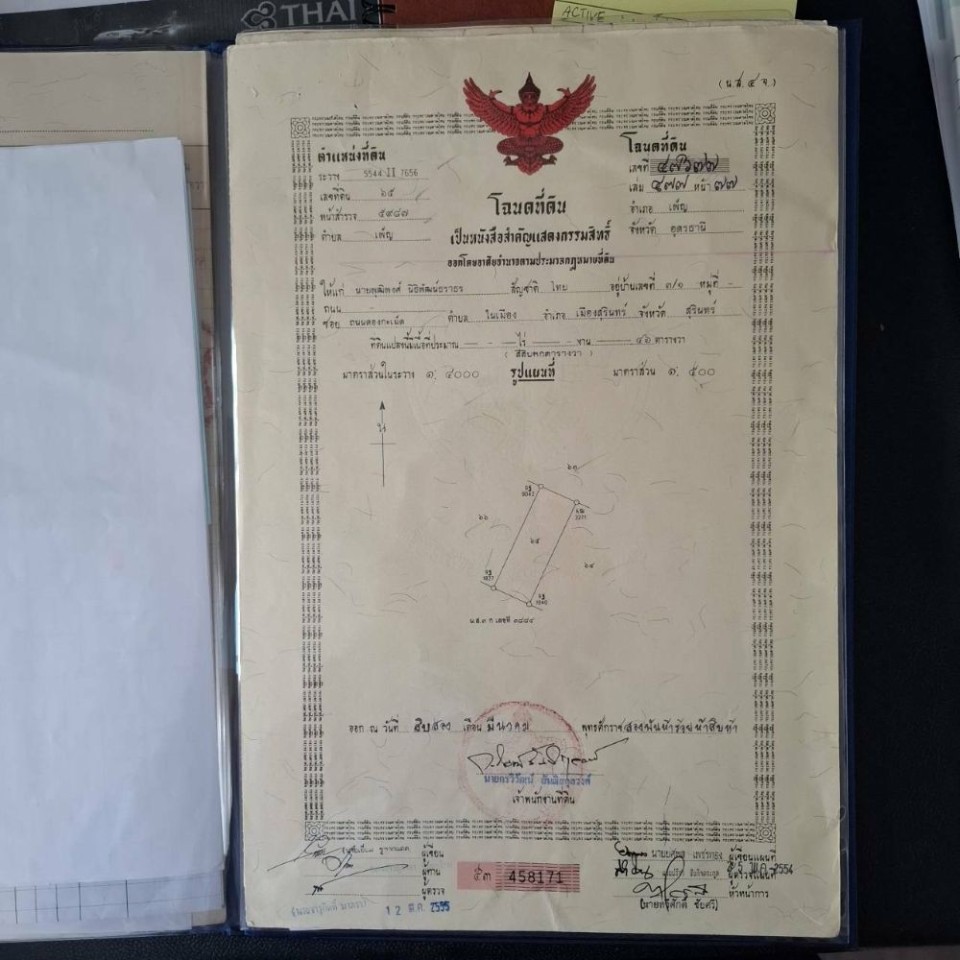 THAI
ACTIVE
(น.ส. ๔ จ.)
ตำแหน่งที่ดิน
ระวาง 5544 II 7656
เลขที่ดิน ๖๕
หน้าสำรวจ ๕๙๘๗
ตำบล เพ็ญ
โฉนดที่ดิน
เลขที่ ๔๗๖๗๗
เล่ม ๔๗๗ หน้า ๗๗
อำเภอ เพ็ญ
จังหวัด อุดรธานี
โฉนดที่ดิน
เป็นหนังสือสำคัญแสดงกรรมสิทธิ์
ออกโดยอาศัยอำนาจตามประมวลกฎหมายที่ดิน
ให้แก่ นายพุฒิพงศ์ นิธิพัฒน์ธราธร สัญชาติ ไทย อยู่บ้านเลขที่ ๓/๑ หมู่ที่ -
ถนน -
ซอย ถนนตองกะเม็ด ตำบล ในเมือง อำเภอ เมืองสุรินทร์ จังหวัด สุรินทร์
ที่ดินแปลงนี้มีเนื้อที่ประมาณ - ไร่ - งาน ๔๖ ตารางวา
(สี่สิบหกตารางวา)
มาตราส่วนในระวาง ๑: ๔๐๐๐ รูปแผนที่ มาตราส่วน ๑: ๕๐๐
๖๓
๖๖
๖๕
๖๔
น.ส.๓ ก เลขที่ ๓๘๘๔
ออก ณ วันที่ สิบสอง เดือน มีนาคม พุทธศักราช สองพันห้าร้อยห้าสิบห้า
เจ้าพนักงานที่ดิน
ผู้เขียน
ผู้ทาน
ผู้ตรวจ
๕๓ 458171
ผู้เขียนแผนที่
2554
หัวหน้าการ
12 มี.ค. 2555